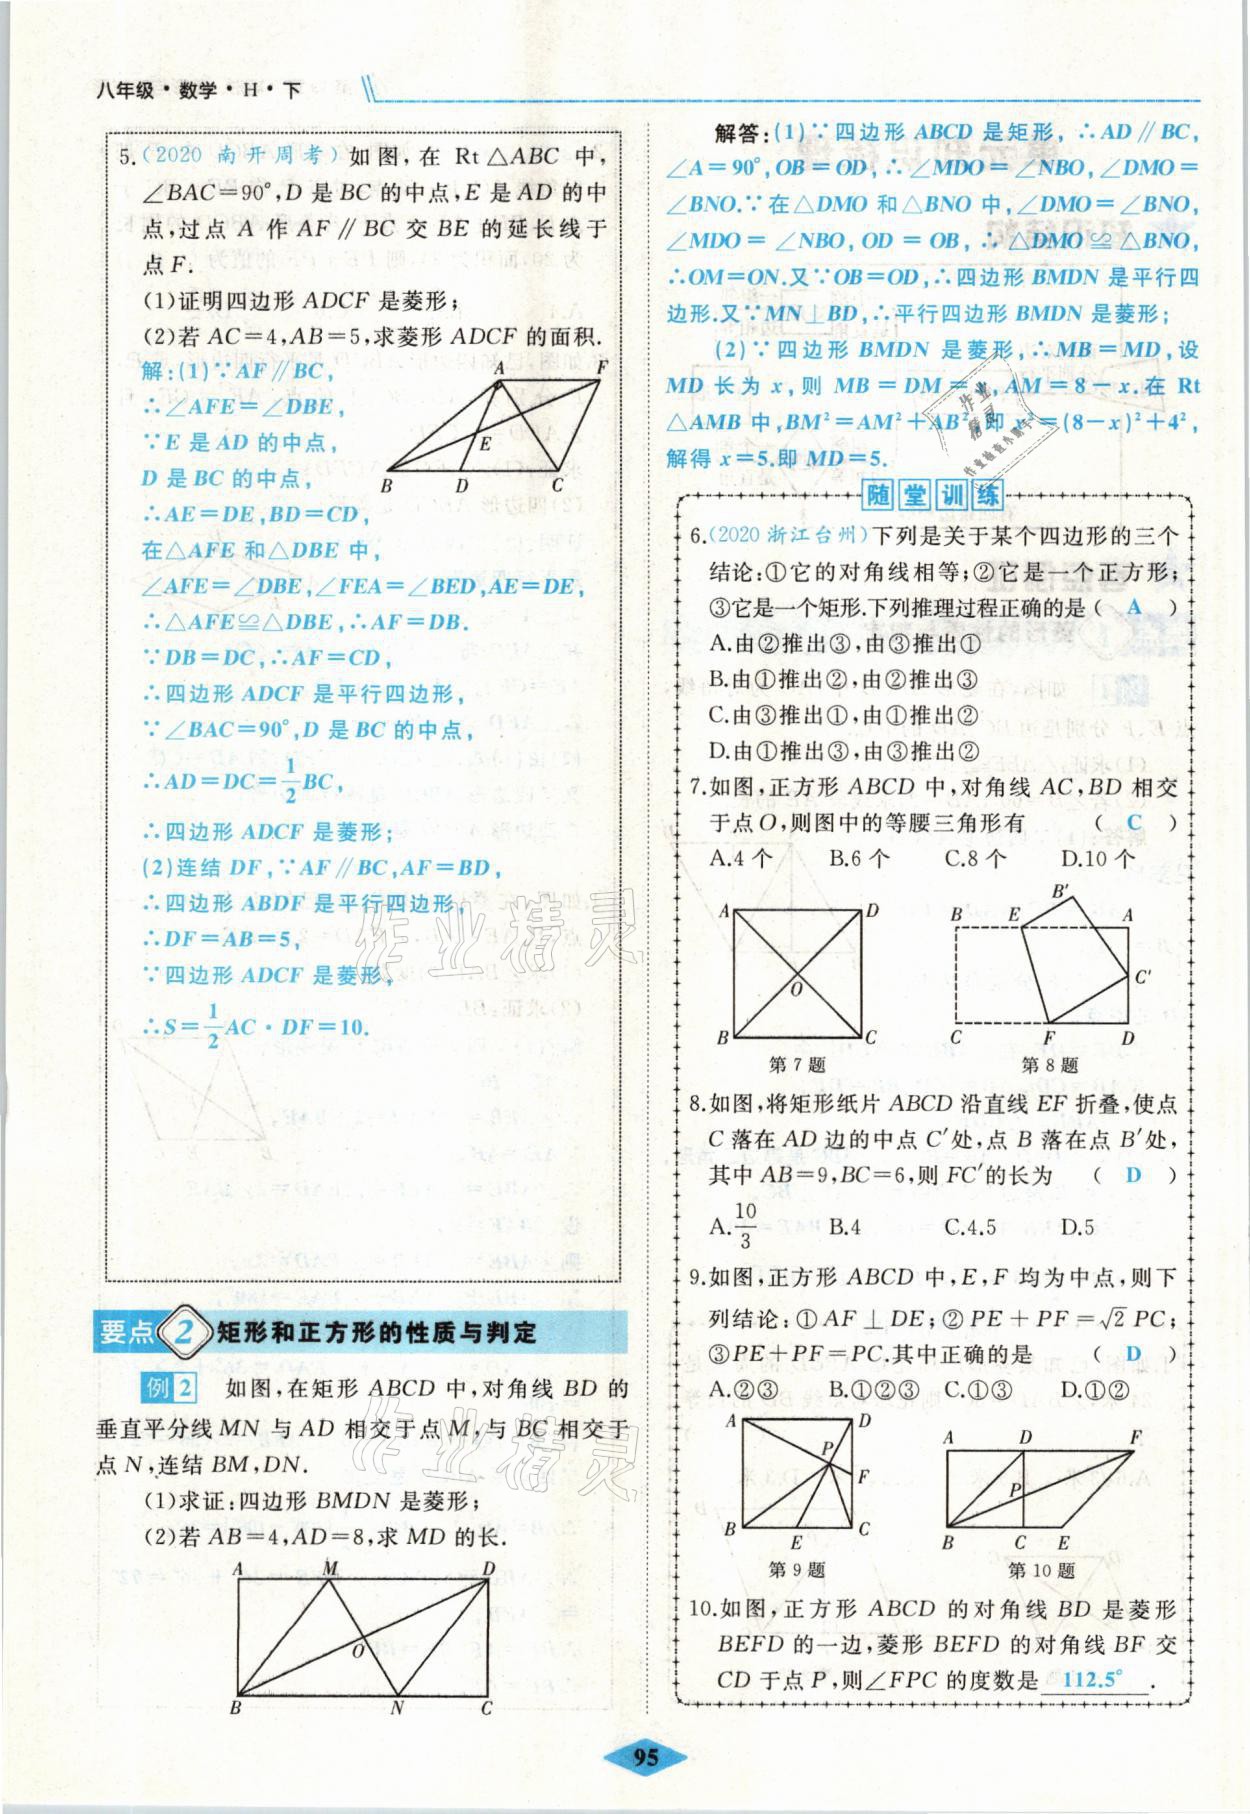 八年级·数学·H·下
5.(2020 南开周考)如图,在 Rt△ABC 中,
∠BAC=90°,D 是 BC 的中点,E 是 AD 的中
点,过点 A 作 AF∥BC 交 BE 的延长线于
点 F.
(1)证明四边形 ADCF 是菱形;
(2)若 AC=4,AB=5,求菱形 ADCF 的面积.
解:(1)∵AF∥BC,
∴∠AFE=∠DBE,
∵E 是 AD 的中点,
D 是 BC 的中点,
∴AE=DE,BD=CD,
在△AFE 和△DBE 中,
∠AFE=∠DBE,∠FEA=∠BED,AE=DE,
∴△AFE≌△DBE,∴AF=DB.
∵DB=DC,∴AF=CD,
∴四边形 ADCF 是平行四边形,
∵∠BAC=90°,D 是 BC 的中点,
∴AD=DC=1/2 BC,
∴四边形 ADCF 是菱形;
(2)连结 DF,∵AF∥BC,AF=BD,
∴四边形 ABDF 是平行四边形,
∴DF=AB=5,
∵四边形 ADCF 是菱形,
∴S=1/2 AC·DF=10.
A F
E
B D C
要点 2 矩形和正方形的性质与判定
例2 如图,在矩形 ABCD 中,对角线 BD 的
垂直平分线 MN 与 AD 相交于点 M,与 BC 相交于
点 N,连结 BM,DN.
(1)求证:四边形 BMDN 是菱形;
(2)若 AB=4,AD=8,求 MD 的长.
A M D
O
B N C
解答:(1)∵四边形 ABCD 是矩形,∴AD∥BC,
∠A=90°,OB=OD,∴∠MDO=∠NBO,∠DMO=
∠BNO.∵在△DMO 和△BNO 中,∠DMO=∠BNO,
∠MDO=∠NBO,OD=OB,∴△DMO≌△BNO,
∴OM=ON.又∵OB=OD,∴四边形 BMDN 是平行四
边形.又∵MN⊥BD,∴平行四边形 BMDN 是菱形;
(2)∵四边形 BMDN 是菱形,∴MB=MD,设
MD 长为 x,则 MB=DM=x,AM=8-x.在 Rt
△AMB 中,BM²=AM²+AB²,即 x²=(8-x)²+4²,
解得 x=5.即 MD=5.
随堂训练
6.(2020 浙江台州)下列是关于某个四边形的三个
结论:①它的对角线相等;②它是一个正方形;
③它是一个矩形.下列推理过程正确的是( A )
A.由②推出③,由③推出①
B.由①推出②,由②推出③
C.由③推出①,由①推出②
D.由①推出③,由③推出②
7.如图,正方形 ABCD 中,对角线 AC,BD 相交
于点 O,则图中的等腰三角形有 ( C )
A.4 个 B.6 个 C.8 个 D.10 个
A D
O
B C
第 7 题
B′
B E A
C′
C F D
第 8 题
8.如图,将矩形纸片 ABCD 沿直线 EF 折叠,使点
C 落在 AD 边的中点 C′处,点 B 落在点 B′处,
其中 AB=9,BC=6,则 FC′的长为 ( D )
A.10/3 B.4 C.4.5 D.5
9.如图,正方形 ABCD 中,E,F 均为中点,则下
列结论:①AF⊥DE;②PE+PF=√2PC;
③PE+PF=PC.其中正确的是 ( D )
A.②③ B.①②③ C.①③ D.①②
A D
P
F
B E C
第 9 题
A D F
P
B C E
第 10 题
10.如图,正方形 ABCD 的对角线 BD 是菱形
BEFD 的一边,菱形 BEFD 的对角线 BF 交
CD 于点 P,则∠FPC 的度数是 112.5° .
作业精灵
作业精灵
作业精灵
95